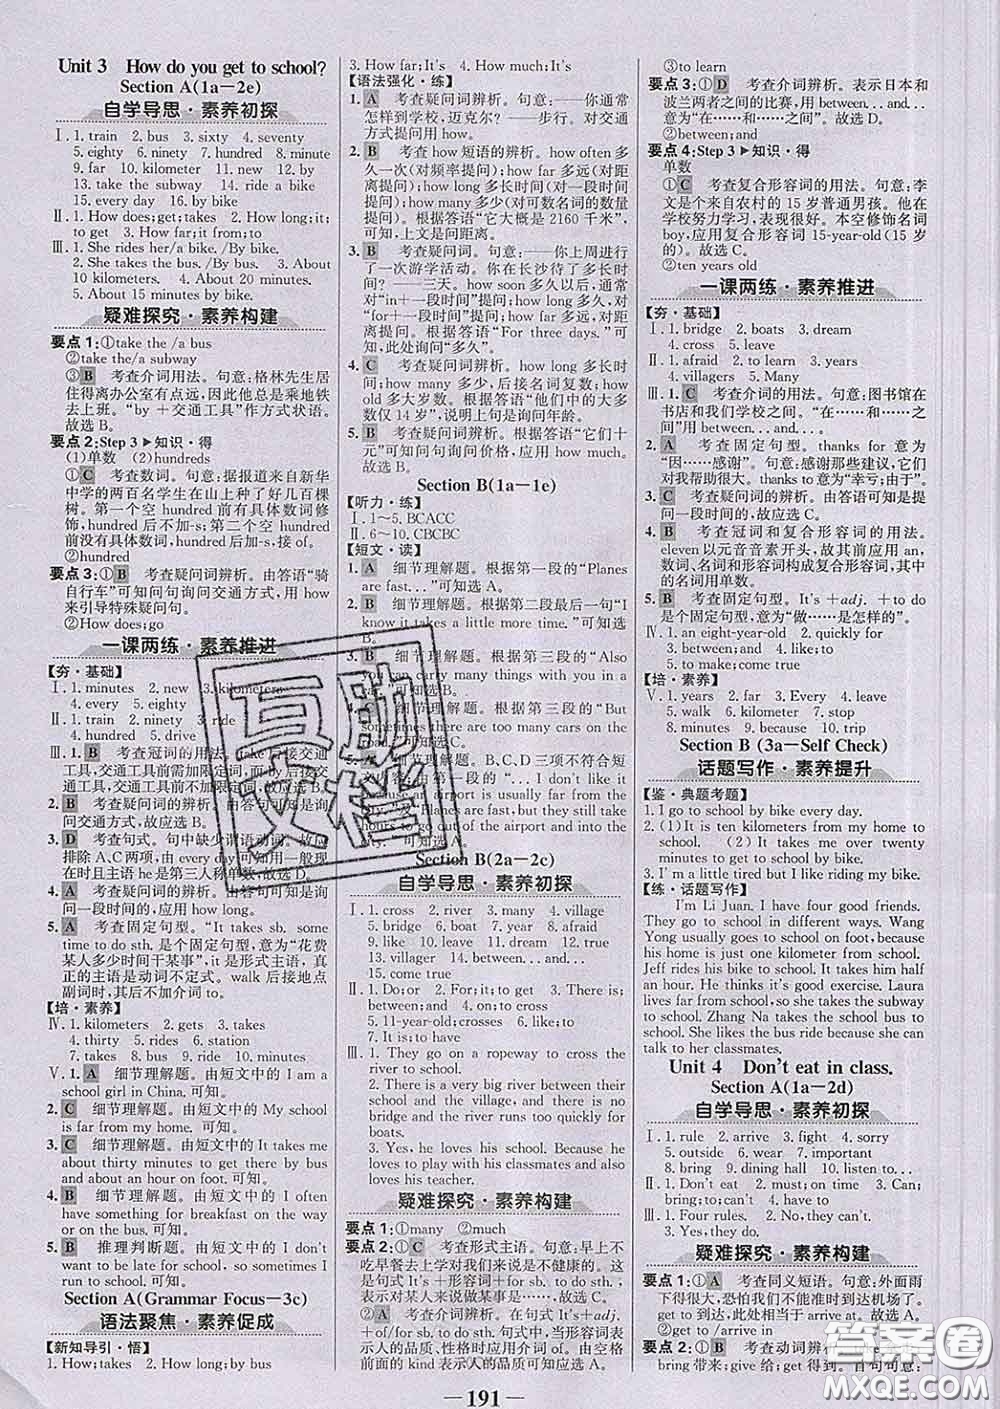 Unit 3 How do you get to school?
Section A(1a—2e)
自学导思·素养初探
Ⅰ. 1. train 2. bus 3. sixty 4. seventy
5. eighty 6. ninety 7. hundred 8. minute
9. far 10. kilometer 11. new 12. by
13. take the subway 14. ride a bike
15. every day 16. by bike
Ⅱ. 1. How does; get; takes 2. How long; it;
to get 3. How far; it from; to
Ⅲ. 1. She rides her/a bike. /By bike.
2. She takes the bus. /By bus. 3. About
10 kilometers. 4. About 20 kilometers.
5. About 15 minutes by bike.
疑难探究·素养构建
要点1:①take the /a bus
②take the/a subway
③B 考查介词用法。句意:格林先生居
住得离办公室有点远,因此他总是乘地铁
去上班。“by +交通工具”作方式状语。
故选B。
要点2:Step 3▶知识·得
(1)单数 (2)hundreds
①C 考查数词。句意:据报道来自新华
中学的两百名学生在山上种了好几百棵
树。第一个空 hundred 前有具体数词修
饰,hundred 后不加-s;第二个空 hundred
前没有具体数词,后加-s,接 of。
②hundred
要点3:①B 考查疑问词辨析。由答语“骑
自行车”可知问句询问交通方式,用 how
来引导特殊疑问句。
②How does; go
一课两练·素养推进
【夯·基础】
Ⅰ. 1. minutes 2. new 3. kilometers
4. every 5. eighty
Ⅱ. 1. train 2. ninety 3. ride
4. hundred 5. drive
Ⅲ. 1. B 考查冠词的用法。take 后接交通
工具,交通工具前需加限定词,而 by 后接
交通工具,交通工具前不加限定词。
2. B 考查疑问词的辨析。由答句可知询
问交通方式,故应选B。
3. D 考查句式。句中缺少谓语动词。故
排除A、C两项,由 every day 可知用一般现
在时且主语 he 是第三人称单数,故选D。
4. A 考查疑问词的辨析。由答句可知是询
问一段的时间,应用 how long。
5. A 考查固定句型。“It takes sb. some
time to do sth. 是个固定句型,意为“花费
某人多少时间干某事”,it 是形式主语,真
正的主语是动词不定式。walk 后接地点
副词时,其后不加介词 to。
【培·素养】
Ⅳ. 1. kilometers 2. gets 3. takes
4. thirty 5. rides 6. station
7. takes 8. bus 9. ride 10. minutes
Ⅴ. 1. A 细节理解题。由短文中的 I am a
school girl in China. 可知。
2. C 细节理解题。由短文中的 My school
is far from my home. 可知。
3. C 细节理解题。由短文中的 It takes me
about thirty minutes to get there by bus
and about an hour on foot. 可知。
4. B 细节理解题。由短文中的 I often
have something for breakfast on the way
or on the bus. 可知。
5. B 推理判断题。由短文中的 I don't
want to be late for school, so sometimes I
run to school. 可知。
Section A(Grammar Focus—3c)
语法聚焦·素养促成
【新知导引·悟】
1. How; takes 2. How long; by bus
3. How far; It's 4. How much; It's
【语法强化·练】
1. A 考查疑问词辨析。句意:——你通常
怎样到学校,迈克尔?——步行。对交通
方式提问用 how。
2. B 考查 how 短语的辨析。how often 多
久一次(对频率提问);how far 多远(对距
离提问);how long 多长时间(对一段时间
提问);how many 多少(对可数名词的数量
提问)。根据答语“它大概是2160千米”,可
知,上文是问距离。
3. B 考查疑问词。句意:——你上周进行
了一次游学活动。你在长沙待了多长时
间?——三天。how soon 多久以后,通常
对“in+一段时间”提问;how long 多久,对
“for+一段时间”提问,how far 多远,对距
离提问。根据答语“For three days.”可
知,此处询问“多久”。
4. C 考查疑问词辨析。how far 多远,问
距离;how many 多少,后接名词复数;how
old 多大岁数。根据答语“他们中的大多
数仅14岁”,说明上句是问年龄。
5. B 考查疑问词辨析。根据答语“它们十
元”可知问句询问价格,应用 how much。
故选B。
Section B(1a—1e)
【听力·练】
Ⅰ. 1~5. BCACC
Ⅱ. 6~10. CBCBC
【短文·读】
1. A 细节理解题。根据第一段的“Planes
are fast...”可知选A。
2. B 细节理解题。根据第二段最后一句“I
know it takes a little more time.”可知选
B。
3. B 细节理解题。根据第三段的“Also
you can carry many things with you in a
car.”可知应选B。
细节理解题。根据第三段的“But
sometimes there are too many cars on the
road.”可知应选
细节理解题。B、C、D三项不符合短
文。由第一段的“...I don't like it
because they are fast, but they still take
hours to go out of the airport and into the
city.”可知选A。
Section B(2a—2c)
自学导思·素养初探
Ⅰ. 1. cross 2. river 3. many 4. village
5. bridge 6. boat 7. year 8. afraid
9. like 10. leave 11. dream 12. true
13. villager 14. between; and
15. come true
Ⅱ. 1. Do; or 2. For; it; to get 3. There is;
between; and 4. on; to cross
5. 11-year-old; crosses 6. like; to
7. It is; to have
Ⅲ. 1. They go on a ropeway to cross the
river to school.
2. There is a very big river between their
school and the village, and there is no
bridge and the river runs too quickly for
boats.
3. Yes, he loves his school. Because he
loves to play with his classmates and also
loves his teacher.
疑难探究·素养构建
要点1:①many ②much
要点2:①C 考查形式主语。句意:早上不
吃早餐去上学对我们来说是不健康的。这
是句式“It's +形容词+for sb. to do sth.,
表示“对某人来说做某事是……”。故选C。
②A 考查介词辨析。在句式 It's+adj.
+ of/for sb. to do sth. 句型中,当形容词表
示人的品质、性格时应用介词 of;由空格
前面的 kind 表示人的品质可知应选A。
③to learn
要点3:①D 考查介词辨析。表示日本和
波兰两者之间的比赛,用 between... and...
意为“在……和……之间”。故选D。
②between; and
要点4:Step 3▶知识·得
单数
①C 考查复合形容词的用法。句意:李
文是个来自农村的15岁普通男孩。他在
学校努力学习。本空修饰名词
boy,应用复合形容词 15-year-old(15岁
的)。故选C。
②ten years old
一课两练·素养推进
【夯·基础】
Ⅰ. 1. bridge 2. boats 3. dream
4. cross 5. leave
Ⅱ. 1. afraid 2. to learn 3. years
4. villagers 5. Many
Ⅲ. 1. C 考查介词的用法。句意:图书馆在
书店和我们学校之间。“在……和……之
间”用 between... and...。
2. A 考查固定句型。thanks for 意为
“因……感谢”。句意:感谢那些建议,它们
对我帮助很大。thanks to意为“幸亏;由于”。
3. C 考查疑问词的辨析。由答语可知是
提问时间的,故应选C。
4. B 考查冠词和复合形容词的用法。
eleven 以元音音素开头,故前面应用 an,
数词、名词和形容词构成复合形容词,其中
的名词用单数。
5. B 考查固定句型。It's +adj. +to do
sth. 意为“做……是怎样的”。
Ⅳ. 1. an eight-year-old 2. quickly for
3. between; and 4. is like; to
5. to make; come true
【培·素养】
Ⅴ. 1. years 2. Every 3. By 4. leave
5. walk 6. kilometer 7. stop
8. minutes 9. because 10. trip
Section B (3a—Self Check)
话题写作·素养提升
【鉴·典题考题】
1. I go to school by bike every day.
2. (1)It is ten kilometers from my home to
school. (2)It takes me over twenty
minutes to get to school by bike.
3. I'm a little tired but I like riding my bike.
【练·话题写作】
I'm Li Juan. I have four good friends.
They go to school in different ways. Wang
Yong usually goes to school on foot, because
his home is just one kilometer from school.
Jeff rides his bike to school. It takes him half
an hour. He thinks it's good exercise. Laura
lives far from school, so she takes the subway
to school. Zhang Na takes the school bus to
school. She likes the bus ride because she can
talk to her classmates.
Unit 4 Don't eat in class.
Section A(1a—2d)
自学导思·素养初探
Ⅰ. 1. rule 2. arrive 3. fight 4. sorry
5. outside 6. wear 7. important
8. bring 9. dining hall 10. listen to
Ⅱ. 1. Don't eat 2. must; on time 3. Can;
bring; to 4. What; have to
Ⅲ. 1. Four rules. 2. No, they can't.
3. Yes, they do.
疑难探究·素养构建
要点1:①A 考查同义短语。句意:外面雨
下得很大,恐怕我们不能及时到达机场了。
get to 到达,此处和 arrive at 同义。故选A。
②get to /arrive in
要点2:①B 考查动词辨析。
bring 带来;give 给;get 得到。
互助文档
答案圈
MXQE.COM
— 191 —